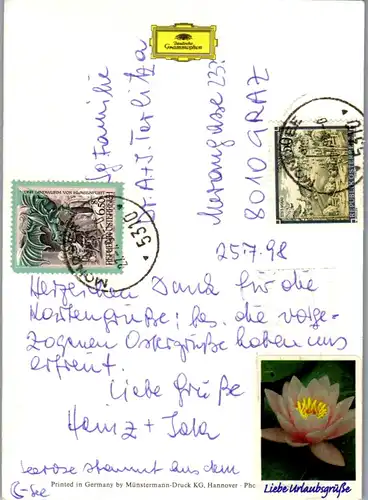 Deutsche
Grammophon
Sg Familie
Dr. A+J. Terlitza
Merangasse 23
8010 GRAZ
5310
5310
6.50
REPUBLIK ÖSTERREICH
25.7.98
Herzlichen Dank für die
Kartengrüße; bes. die vorge-
zogenen Ostergrüße haben uns
erfreut.
Liebe Grüße
Heinz +
Seerose stammt aus dem
-See
Printed in Germany by Münstermann-Druck KG, Hannover · Pho
Liebe Urlaubsgrüße